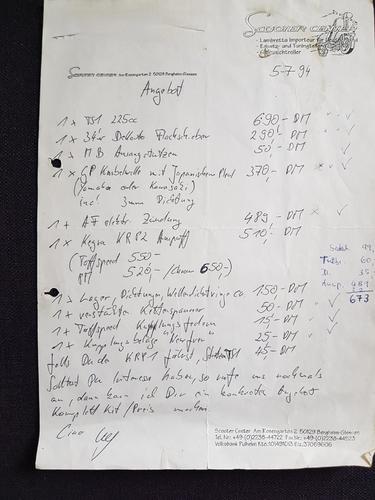 SCOOTER CENTER
- Lambretta Importeur für
- Ersatz- und Tuningteile
SCOOTER CENTER Am Rosengarten 2 50129 Bergheim-Glessen
5-7-94
Angebot
1 x TS1 225cc 690,- DM
1 x 34er Dellorto Flachschieber 290,- DM
1 x MB Ansaugstutzen 50,- DM
1 x GP Kurbelwelle mit Japanischem Pleul 370,- DM
(Yamaha oder Kawasaki)
incl 3mm Dichtung
1 x AF elektr. Zündung 489,- DM
1 x Kegra KRP2 Auspuff 510,- DM
(Taffspeed 550,-
PM 520,- /Chrom 650,-)
1 x Lager, Dichtungen, Wellendichtringe co. 150,- DM
1 x verstärkter Kettenspanner 50,- DM
1 x Taffspeed Kupplungsfedern 15,- DM
1 x Kupplungsbeläge 25,- DM
falls Du da KRP1 fährst, 45,- DM
60
35
673
Solltest Du Interesse haben, so rufe uns nochmals
an, dann kann ich Dir ein konkretes Angebot
Komplett Kit/Preis machen.
Ciao
Scooter Center Am Rosengarten 2 50129 Bergheim-Glessen
Tel. Nr.: +49-(0)2238-44722 Fax Nr.: +49-(0)2238-44523
Volksbank Pulheim